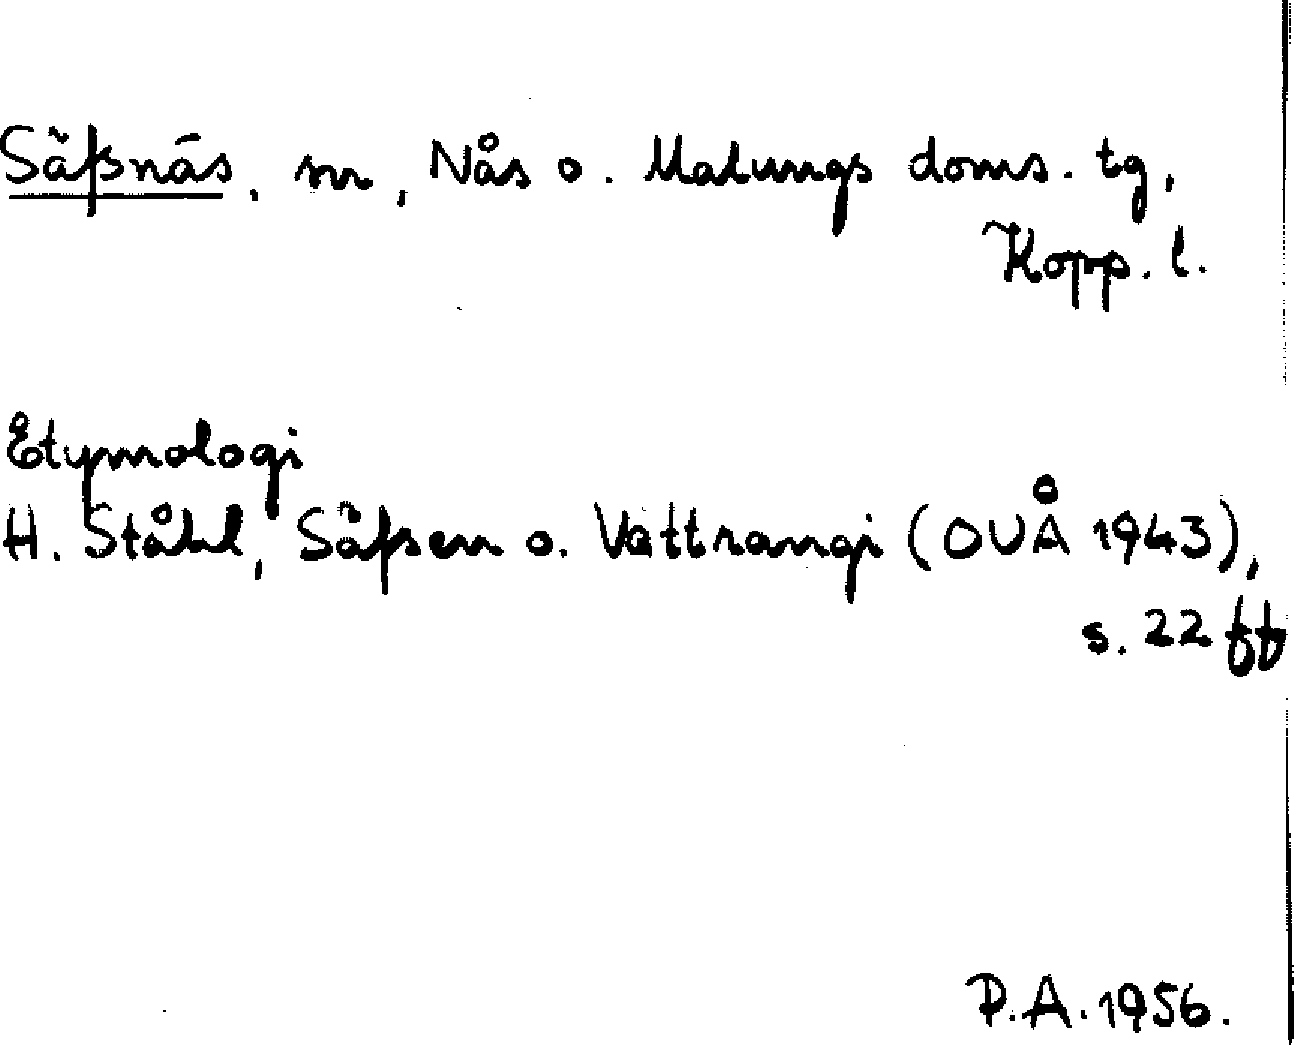 Säfsnäs, sn, Nås o. Malungs doms. tg,
Kopp. l.
Etymologi
H. Ståhl, Säfsen o. Vattrangi (OUÅ 1943),
s. 22 ff
P.A. 1956.